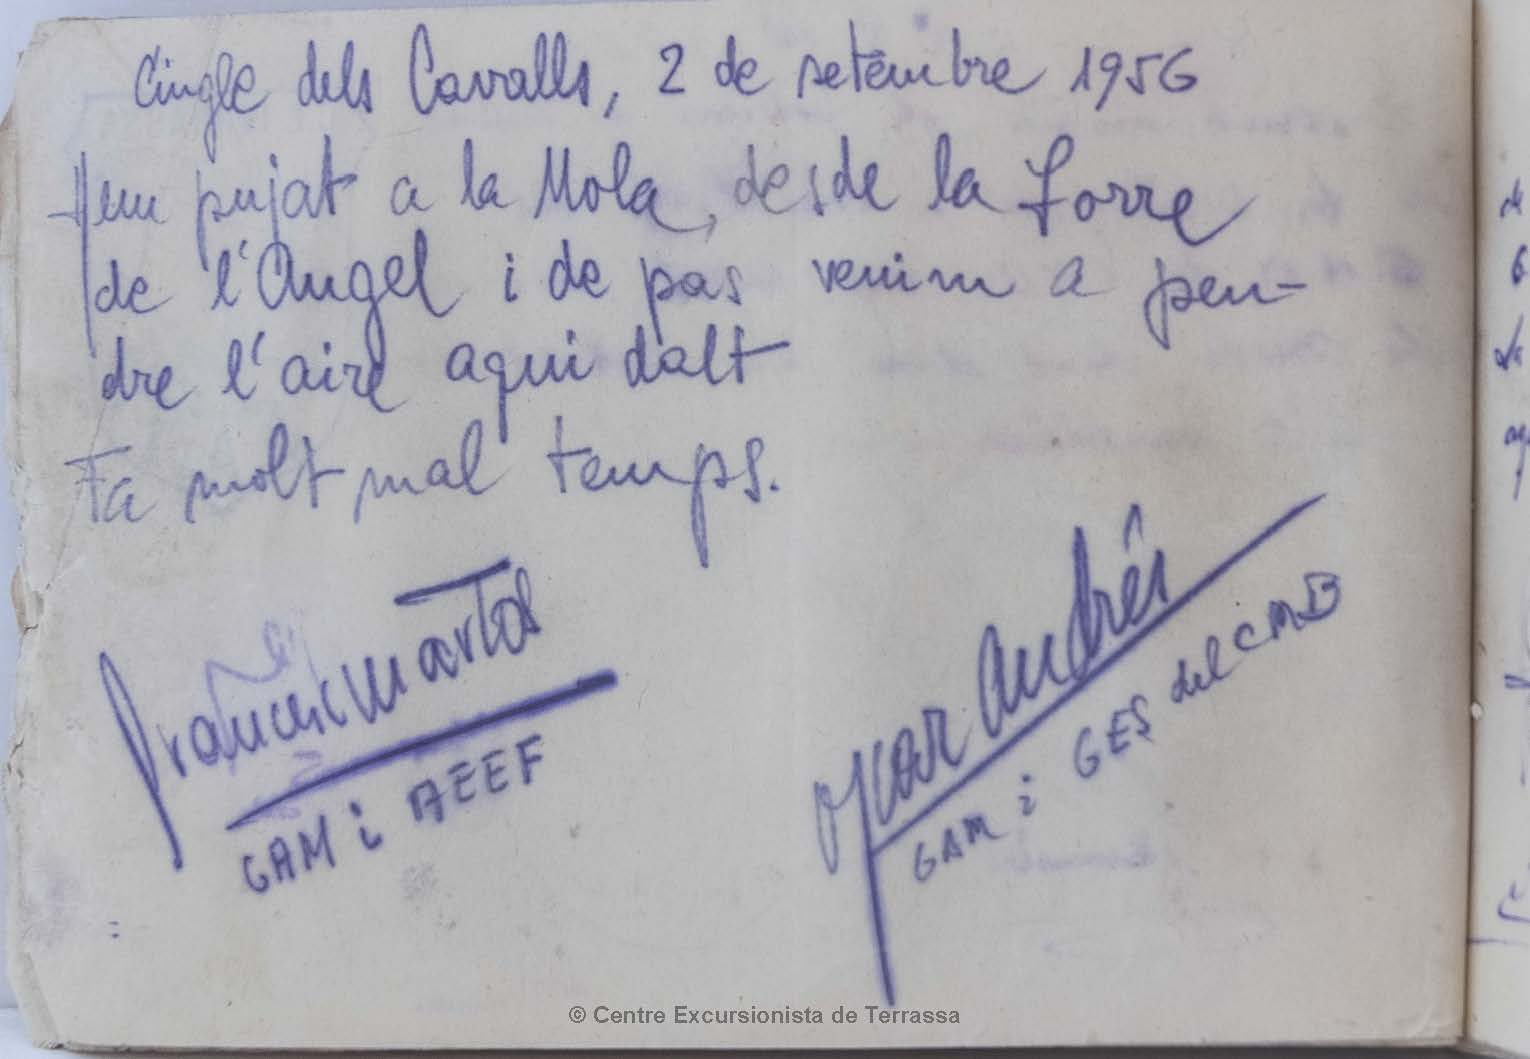 Cingle dels Cavalls, 2 de setembre 1956
Hem pujat a la Mola, desde la Torre
de l'Angel i de pas venim a pen-
dre l'aire aqui dalt
Fa molt mal temps.
Francesc Martos
GAM i AEEF
Oscar Andrés
GAM i GES del CMB
© Centre Excursionista de Terrassa